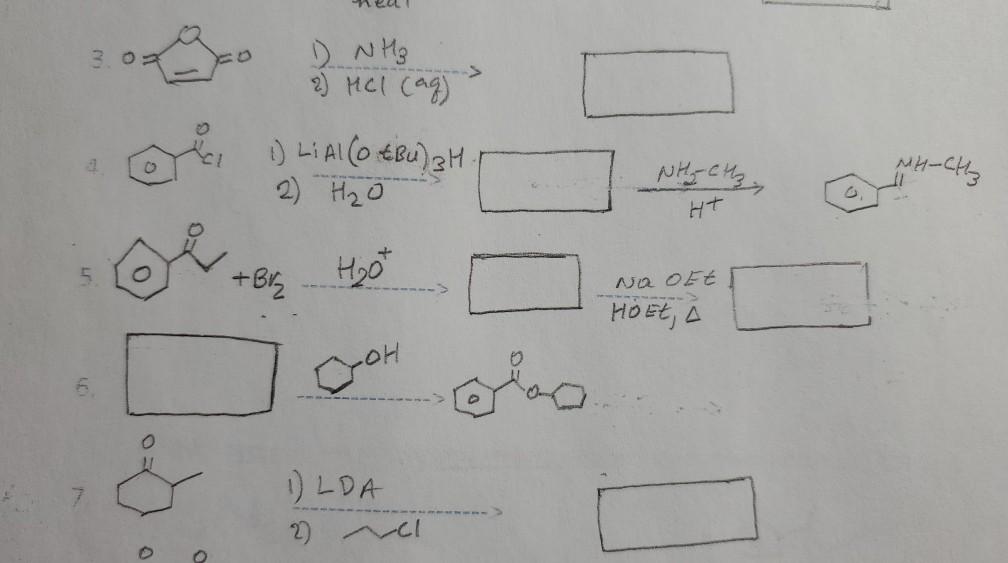 heat
3. O O O 1) NH3
2) HCl (aq)
4. O Cl 1) LiAl(O tBu)3H
2) H2O
NH2-CH3
H+
NH-CH3
5. O + Br2 H2O+ Na OEt
HOEt, Δ
6. OH O O
7. O 1) LDA
2) Cl
O O